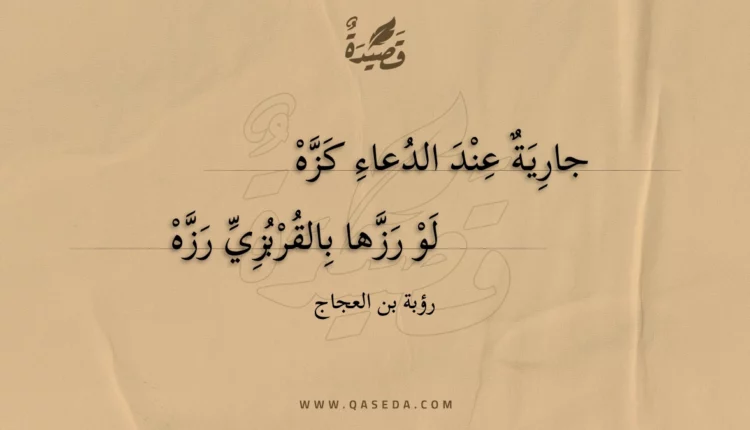 قَصِيْدَةٌ
جارِيَةٌ عِنْدَ الدُعاءِ كَزَّهْ
لَوْ رَزَّها بِالقُرْبُزِيِّ رَزَّهْ
رؤبة بن العجاج
WWW.QASEDA.COM